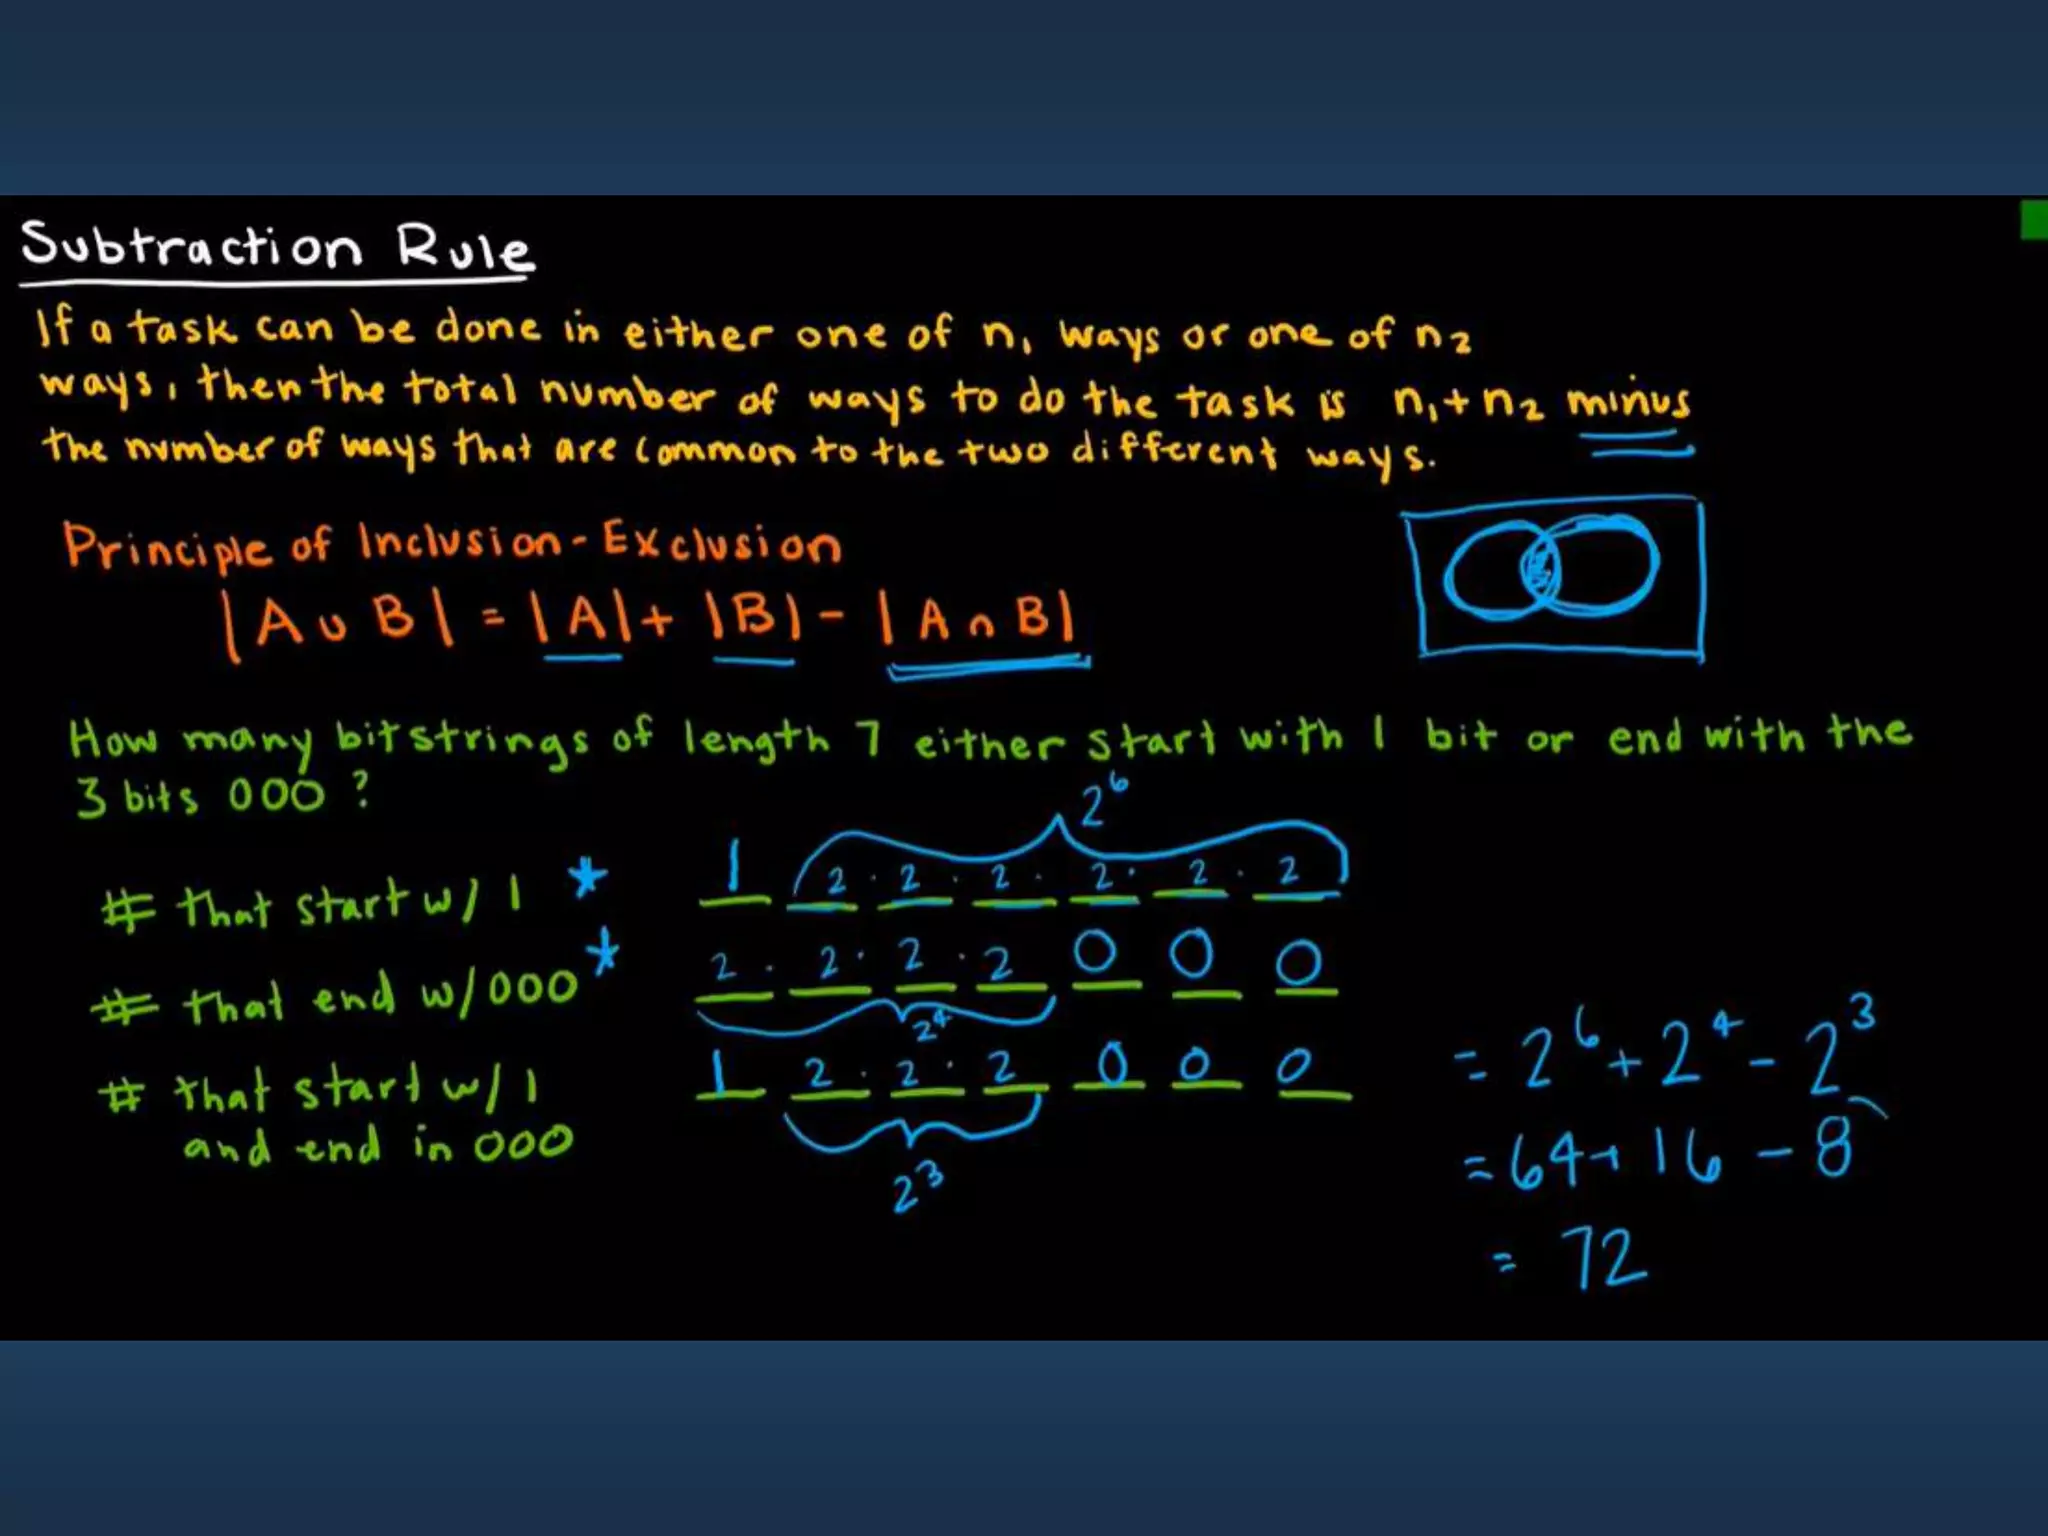 Subtraction Rule
If a task can be done in either one of n₁ ways or one of n₂
ways, then the total number of ways to do the task is n₁ + n₂ minus
the number of ways that are common to the two different ways.
Principle of Inclusion-Exclusion
|A ∪ B| = |A| + |B| - |A ∩ B|
How many bitstrings of length 7 either start with 1 bit or end with the
3 bits 000?
2⁶
# that start w/ 1 * 1 2 · 2 · 2 · 2 · 2 · 2
# that end w/ 000 * 2 · 2 · 2 · 2 0 0 0
2⁴
# that start w/ 1 1 2 · 2 · 2 0 0 0
and end in 000
2³
= 2⁶ + 2⁴ - 2³
= 64 + 16 - 8
= 72